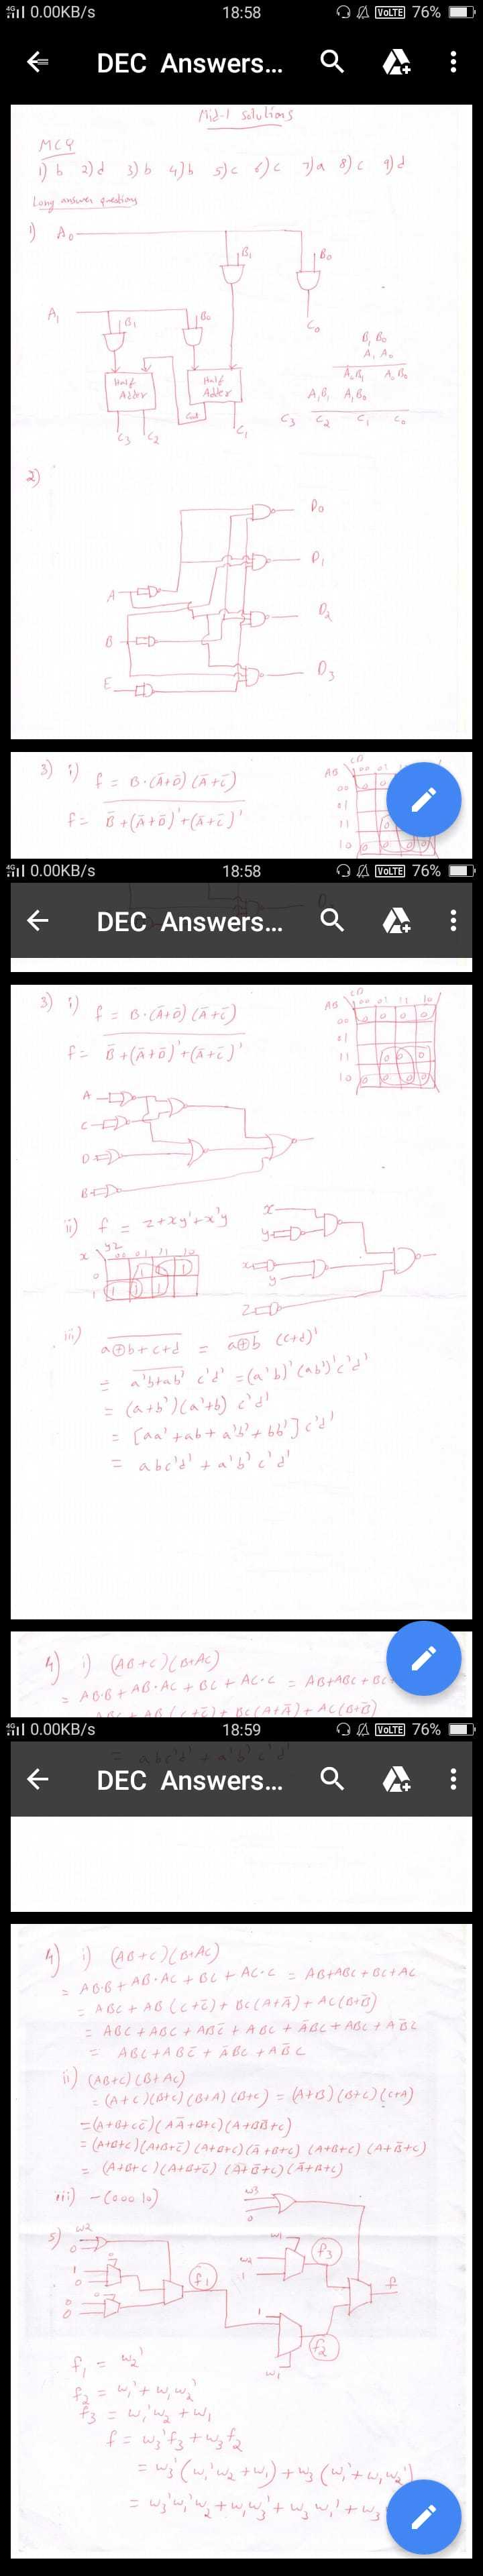 4G 0.00KB/s 18:58 VoLTE 76%
DEC Answers...
Mid-1 Solutions
MCQ
1) b 2) d 3) b 4) b 5) c 6) c 7) a 8) c 9) d
Long answer questions
1) A₀
B₁ B₀
C₀
A₁ B₁ B₀
Half Adder
Half Adder
Cout
C₃ C₂ C₁
B₁ B₀
A₁ A₀
A₀B₁ A₀B₀
A₁B₁ A₁B₀
C₃ C₂ C₁ C₀
2)
D₀
D₁
A
D₂
B
D₃
E
3) i) f = B·(Ā+D̄)(Ā+C̄)
f = B̄+(Ā+D̄)'+(Ā+C̄)'
AB CD 00 01
00
01
11
10
4G 0.00KB/s 18:58 VoLTE 76%
DEC Answers...
3) i) f = B·(Ā+D̄)(Ā+C̄)
f = B̄+(Ā+D̄)'+(Ā+C̄)'
AB CD 00 01 11 10
00 0 0 0 0
01
11 0 0 0
10 0 0 0 0
A
C
D
B
ii) f = z+xy'+x'y
x yz 00 01 11 10
0 1 1 1
1 1 1 1
x
y
x
y
z
iii) a⊕b+c+d = a⊕b (c+d)'
= a'b+ab' c'd' = (a'b)'(ab')'c'd'
= (a+b')(a'+b) c'd'
= [aa'+ab+a'b'+bb'] c'd'
= abc'd' + a'b'c'd'
4) i) (AB+C)(B+AC)
= AB·B + AB·AC + BC + AC·C = AB+ABC+BC
4G 0.00KB/s 18:59 VoLTE 76%
= abc'd' + a'b'c'd'
DEC Answers...
4) i) (AB+C)(B+AC)
= AB·B + AB·AC + BC + AC·C = AB+ABC+BC+AC
= ABC + AB(C+C̄) + BC(A+Ā) + AC(B+B̄)
= ABC + ABC + ABC̄ + ABC + ĀBC + ABC + AB̄C
= ABC + ABC̄ + ĀBC + AB̄C
ii) (AB+C)(B+AC)
= (A+C)(B+C)(B+A)(B+C) = (A+B)(B+C)(C+A)
= (A+B+CC̄)(AĀ+B+C)(A+BB̄+C)
= (A+B+C)(A+B+C̄)(A+B+C)(Ā+B+C)(A+B+C)(A+B̄+C)
= (A+B+C)(A+B+C̄)(A+B̄+C)(Ā+B+C)
iii) -(00010)
w3
0
5) w2
0
1
0
0
0
f₁
w1
w2
1
f₃
1
w1
f₂
f
f₁ = w₂'
f₂ = w₁' + w₁w₂'
f₃ = w₁'w₂ + w₁
f = w₃'f₃ + w₃f₂
= w₃'(w₁'w₂ + w₁) + w₃(w₁' + w₁w₂')
= w₃'w₁'w₂ + w₁w₃' + w₃w₁' + w₃